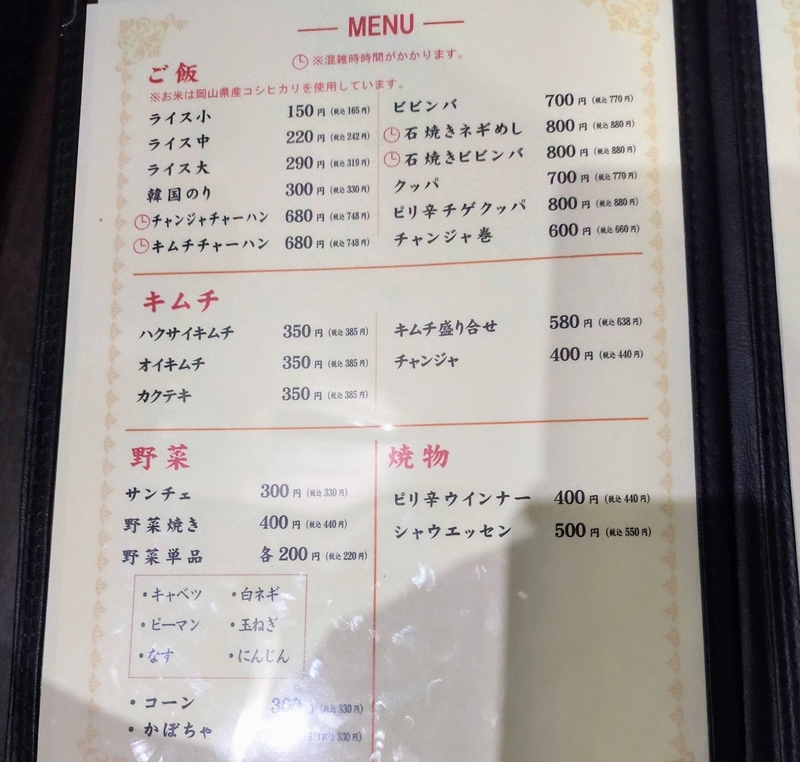 MENU
※混雑時時間がかかります。
ご飯
※お米は岡山県産コシヒカリを使用しています。
ライス小 150円(税込165円)
ライス中 220円(税込242円)
ライス大 290円(税込319円)
韓国のり 300円(税込330円)
チャンジャチャーハン 680円(税込748円)
キムチチャーハン 680円(税込748円)
ビビンバ 700円(税込770円)
石焼きネギめし 800円(税込880円)
石焼きビビンバ 800円(税込880円)
クッパ 700円(税込770円)
ピリ辛チゲクッパ 800円(税込880円)
チャンジャ巻 600円(税込660円)
キムチ
ハクサイキムチ 350円(税込385円)
オイキムチ 350円(税込385円)
カクテキ 350円(税込385円)
キムチ盛り合せ 580円(税込638円)
チャンジャ 400円(税込440円)
野菜
サンチェ 300円(税込330円)
野菜焼き 400円(税込440円)
野菜単品 各200円(税込220円)
・キャベツ ・白ネギ
・ピーマン ・玉ねぎ
・なす ・にんじん
・コーン 300円(税込330円)
・かぼちゃ (税込330円)
焼物
ピリ辛ウインナー 400円(税込440円)
シャウエッセン 500円(税込550円)